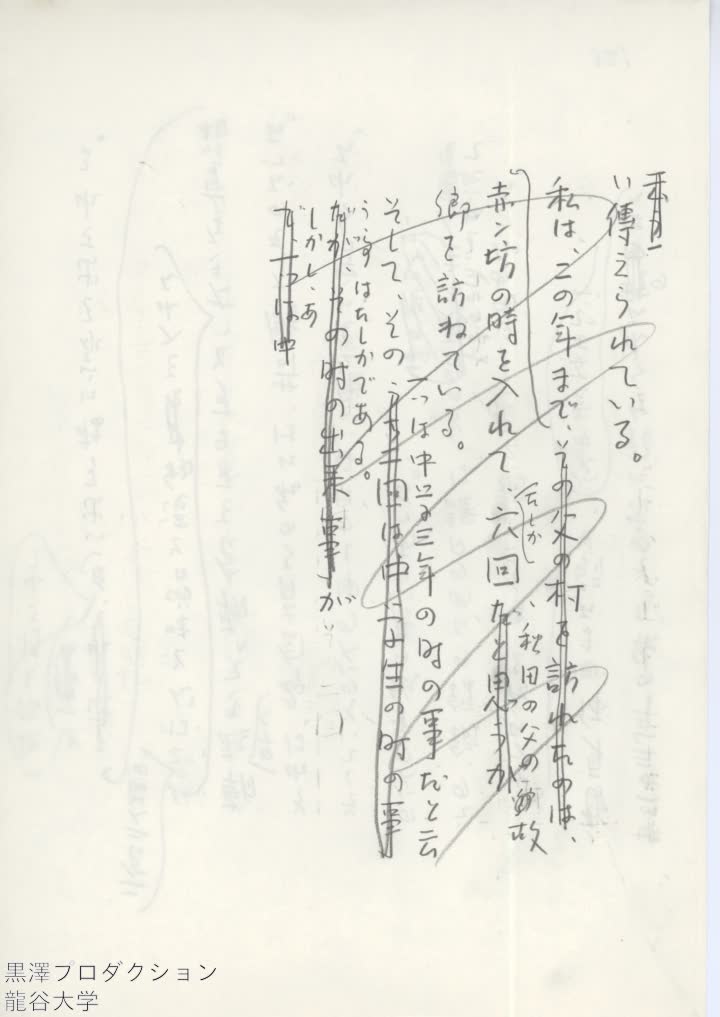 い傳えられている。
私は、この年まで、その父の村を訪れたのは、
赤ン坊の時を入れて、六回だと思うが
たしか、秋田の父の故
郷を訪ねている。
一つは中学三年の時の事だと云
そして、そのうち二回は中学生の時の事
うのはたしかである。
だが、その時の出来事が
しかし、あ
だ、一つは中
黒澤プロダクション
龍谷大学